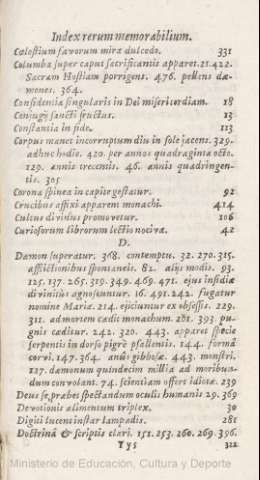 Index rerum memorabilium.
Cœlestium favorum mira dulcedo. 331
Columba super caput sacrificantis apparet. 21. 422.
Sacram Hostiam porrigens. 476. pellens dæ-
mones. 364.
Confidentia singularis in Dei misericordiam. 18
Conjugij sancti fructus. 13
Constantia in fide. 113
Corpus manet incorruptum diu in sole jacens. 329.
adhuc hodie. 420. per annos quadraginta octo.
129. annis trecentis. 46. annis quadringen-
tis. 305
Corona spinea in capite gestatur. 92
Crucibus affixi apparent monachi. 414
Cultus divinus promovetur. 106
Curiosorum librorum lectio nociva. 42
D.
Dæmon superatur. 368. contemptu. 32. 270. 315.
afflictionibus spontaneis. 82. alijs modis. 93.
125. 137. 265. 319. 349. 469. 471. ejus insidiæ
divinitus agnoscuntur. 16. 491. 242. fugatur
nomine Mariæ. 214. ejiciuntur ex obsessis. 229.
311. ad mortem cædit monachum. 281. 393. pu-
gnis cæditur. 242. 320. 443. apparet specie
serpentis in dorso pigrè psallentis. 144. formâ
corvi. 147. 364. anûs gibbosæ. 443. monstri.
127. dæmonum quindecim millia ad moribun-
dum convolant. 74. scientiam offert idiotæ. 239
Deus se præbet spectandum oculis humanis 29. 369
Devotionis alimentum triplex. 30
Digiti lucent instar lampadis. 281
Doctrinâ & scriptis clari. 151. 253. 260. 269. 396.
Yy5 322
Ministerio de Educación, Cultura y Deporte